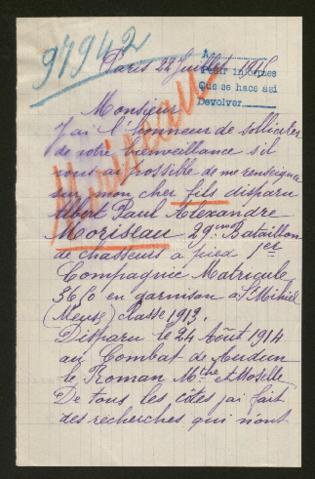 97942
Paris 22 Juillet 1915
A
Para informes
Que se hace así
Devolver
Moriseau
Monsieur
J'ai l'honneur de solliciter
de votre bienveillance s'il
vous est possible de me renseigner
sur mon cher fils disparu
Albert Paul Alexandre
Moriseau 29ème Bataillon
de chasseurs à pied 1er
Compagnie Matricule
3650 en garnison à St Mihiel
(Meuse) classe 1913.
Disparu le 24 Août 1914
au Combat de Audun
le Roman Mthe et Moselle
De tous les côtés j'ai fait
des recherches qui n'ont